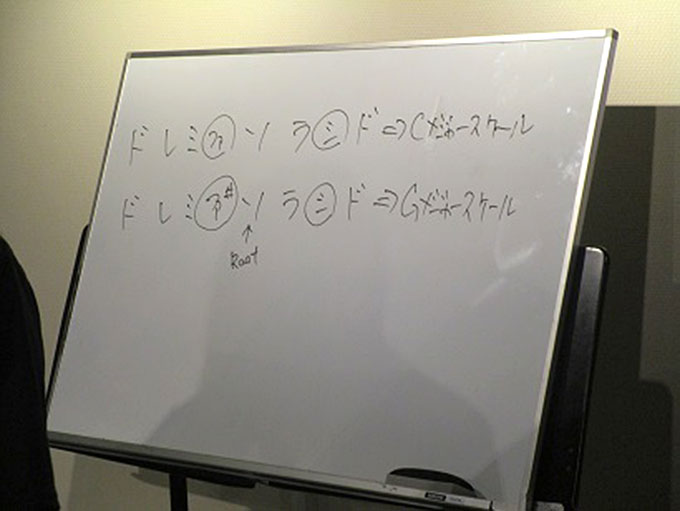 ド レ ミ ファ ソ ラ シ ド ⇒ Cメジャースケール
ド レ ミ ファ# ソ ラ シ ド ⇒ Gメジャースケール
↑
Root